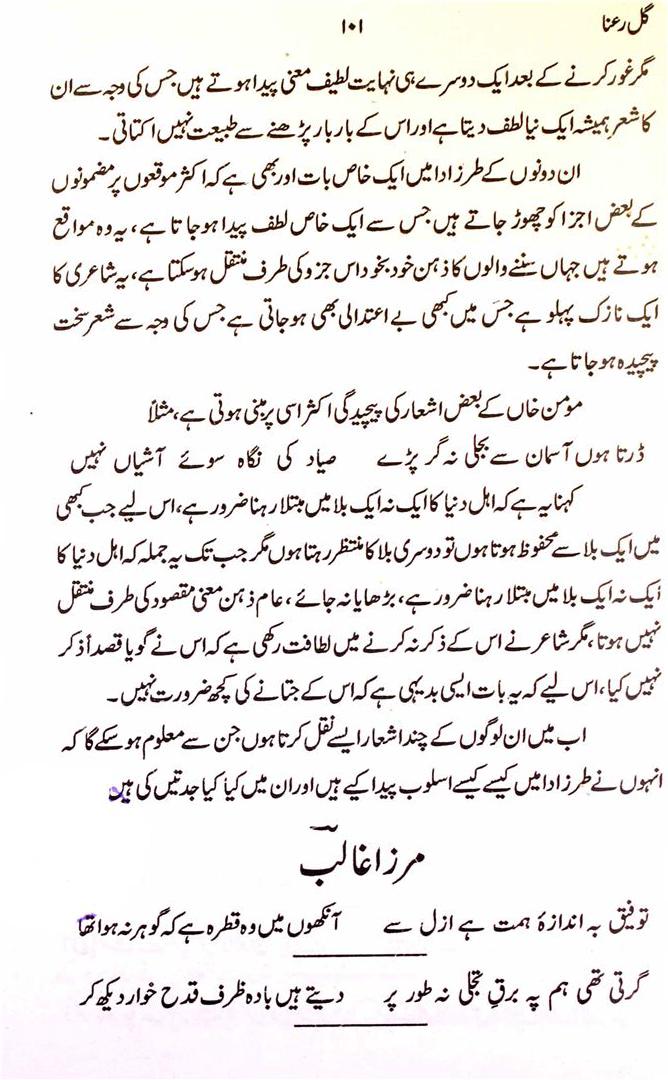 گل رعنا ۱۰۱
مگر غور کرنے کے بعد ایک دوسرے ہی نہایت لطیف معنی پیدا ہوتے ہیں جس کی وجہ سے ان
کا شعر ہمیشہ ایک نیا لطف دیتا ہے اور اس کے بار بار پڑھنے سے طبیعت نہیں اکتاتی۔
ان دونوں کے طرز ادا میں ایک خاص بات اور بھی ہے کہ اکثر موقعوں پر مضمونوں
کے بعض اجزا کو چھوڑ جاتے ہیں جس سے ایک خاص لطف پیدا ہو جاتا ہے، یہ وہ مواقع
ہوتے ہیں جہاں سننے والوں کا ذہن خود بخود اس جزو کی طرف منتقل ہو سکتا ہے، یہ شاعری کا
ایک نازک پہلو ہے جس میں کبھی بے اعتدالی بھی ہو جاتی ہے جس کی وجہ سے شعر سخت
پیچیدہ ہو جاتا ہے۔
مومن خاں کے بعض اشعار کی پیچیدگی اکثر اسی پر مبنی ہوتی ہے، مثلاً
ڈرتا ہوں آسمان سے بجلی نہ گر پڑے صیاد کی نگاہ سوئے آشیاں نہیں
کہنا یہ ہے کہ اہل دنیا کا ایک نہ ایک بلا میں مبتلا رہنا ضرور ہے، اس لیے جب کبھی
میں ایک بلا سے محفوظ ہوتا ہوں تو دوسری بلا کا منتظر رہتا ہوں مگر جب تک یہ جملہ کہ اہل دنیا کا
ایک نہ ایک بلا میں مبتلا رہنا ضرور ہے، بڑھایا نہ جائے، عام ذہن معنی مقصود کی طرف منتقل
نہیں ہوتا، مگر شاعر نے اس کے ذکر نہ کرنے میں لطافت رکھی ہے کہ اس نے گویا قصداً ذکر
نہیں کیا، اس لیے کہ یہ بات ایسی بدیہی ہے کہ اس کے جتانے کی کچھ ضرورت نہیں۔
اب میں ان لوگوں کے چند اشعار ایسے نقل کرتا ہوں جن سے معلوم ہو سکے گا کہ
انہوں نے طرز ادا میں کیسے کیسے اسلوب پیدا کیے ہیں اور ان میں کیا کیا جدتیں کی ہیں
مرزا غالب
توفیق بہ اندازۂ ہمت ہے ازل سے آنکھوں میں وہ قطرہ ہے کہ گوہر نہ ہوا تھا
گرتی تھی ہم پہ برقِ تجلی نہ طور پر دیتے ہیں بادہ ظرف قدح خوار دیکھ کر